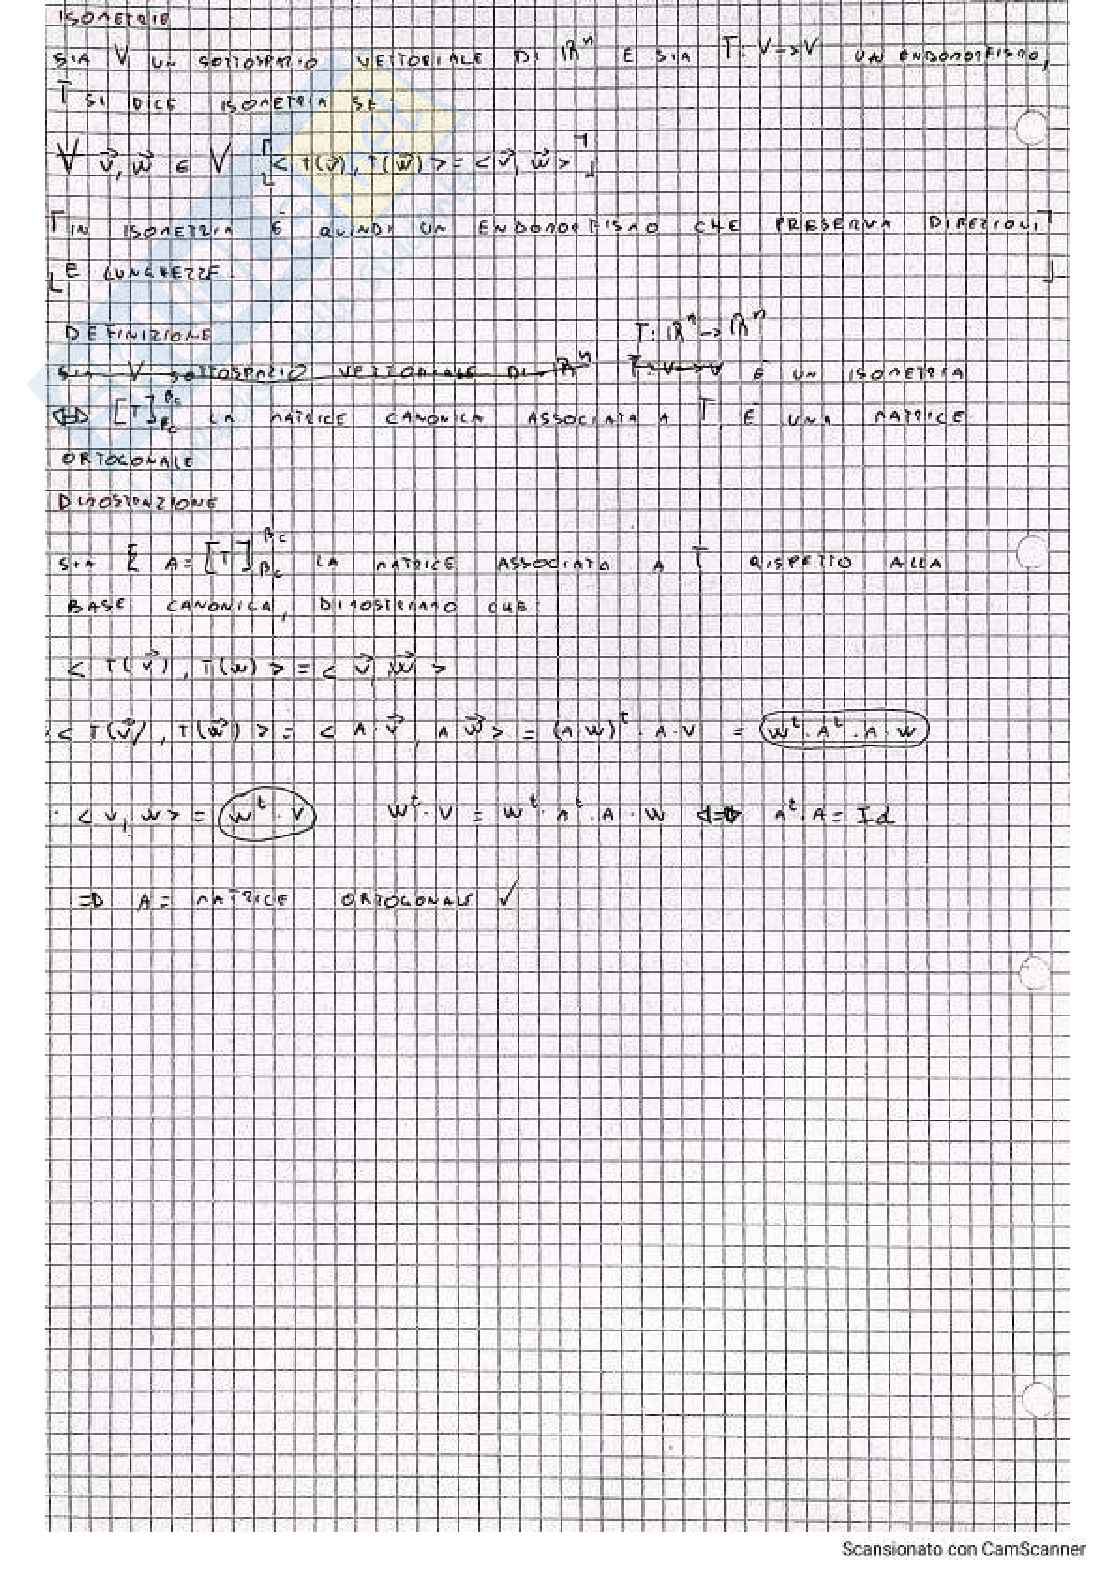 ISOMETRIE
SIA V UN SOTTOSPAZIO VETTORIALE DI ℝⁿ E SIA T: V→V UN ENDOMORFISMO,
T SI DICE ISOMETRIA SE
∀ v⃗, w⃗ ∈ V [< T(v⃗), T(w⃗) > = < v⃗, w⃗ >]
[UN ISOMETRIA È QUINDI UN ENDOMORFISMO CHE PRESERVA DIREZIONI
E LUNGHEZZE]
DEFINIZIONE T: ℝⁿ → ℝⁿ
SIA V SOTTOSPAZIO VETTORIALE DI ℝⁿ T: V→V È UN ISOMETRIA
⇔ [T]_Bc^Bc LA MATRICE CANONICA ASSOCIATA A T È UNA MATRICE
ORTOGONALE
DIMOSTRAZIONE
SIA A = [T]_Bc^Bc LA MATRICE ASSOCIATA A T RISPETTO ALLA
BASE CANONICA, DIMOSTRIAMO CHE:
< T(v⃗), T(w) > = < v⃗, w⃗ >
· < T(v⃗), T(w⃗) > = < A · v⃗, A w⃗ > = (A·W)ᵗ · A·V = Wᵗ · Aᵗ · A · W
· < V, W > = Wᵗ · V Wᵗ · V = Wᵗ · Aᵗ · A · W ⇔ Aᵗ · A = Id
⇒ A = MATRICE ORTOGONALE ✓
Scansionato con CamScanner